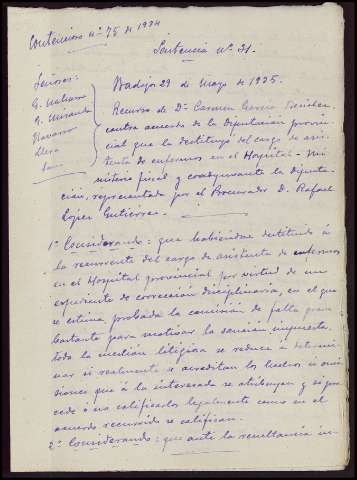 Contencioso nº 75 de 1934
Sentencia nº 31.
Señores:
G. Matrano
G. Miranda
Navarro
Llera
Badajoz 29 de Mayo de 1935.
Recurso de Dª Carmen García Sánchez
contra acuerdo de la Diputación provin-
cial que la destituyó del cargo de asis-
tenta de enfermos en el Hospital - Mi-
nisterio fiscal y coadyuvante la Diputa-
ción, representada por el Procurador D. Rafael
Lopez Gutierrez.
1º Considerando: que habiendose destituido á
la recurrente del cargo de asistenta de enfermos
en el Hospital provincial por virtud de un
expediente de corrección disciplinaria, en el que
se estima probada la comisión de falta grave
bastante para motivar la sanción impuesta,
toda la cuestión litigiosa se reduce á determi-
nar si realmente se acreditan los hechos ú omi-
siones que á la interesada se atribuyen y si pro-
cede ó no calificarlos legalmente como en el
acuerdo recurrido se califican.
2º Considerando: que ante la resultancia in-